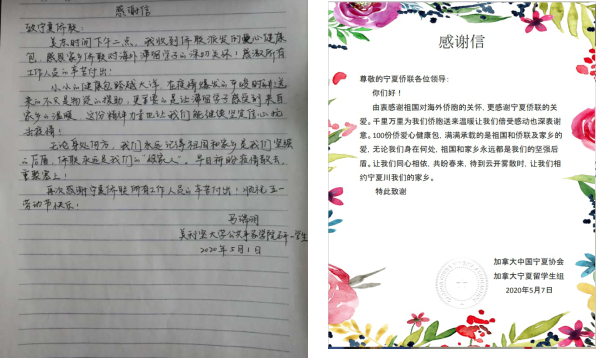 感谢信
致宁夏侨联:
美东时间下午二点，我收到侨联派发的爱心健康
包，感恩家乡侨联对海外滞留学子的深切关怀！感激所有
工作人员的辛苦付出！
小小的健康包跨越大洋，在疫情爆发的严峻时刻送
来的不只是物资的援助，更重要的是让滞留学子感受到来自
家乡的温暖，这份精神力量也让我们能继续坚定信心抗
击疫情！
无论身处何方，我们永远记得祖国和家乡是我们坚强
的后盾，侨联永远是我们的“娘家人”。早日盼疫情散去，
重聚塞上！
再次感谢宁夏侨联所有工作人员的辛苦付出！顺祝五一
劳动节快乐！
美利坚大学公共事务学院
2020年5月1日
感谢信
尊敬的宁夏侨联各位领导:
你们好！
由衷感谢祖国对海外侨胞的关怀，更感谢宁夏侨联的关
爱。千里万里为我们侨胞送来温暖让我们倍受感动也深表谢
意。100份侨爱心健康包，满满承载的是祖国和侨联及家乡的
爱，无论我们身在何处，祖国和家乡永远都是我们的坚强后
盾。让我们同心相依，共盼春来，待到云开雾散时，让我们相
约宁夏川我们的家乡。
特此致谢
加拿大中国宁夏协会
加拿大宁夏留学生组
2020年5月7日